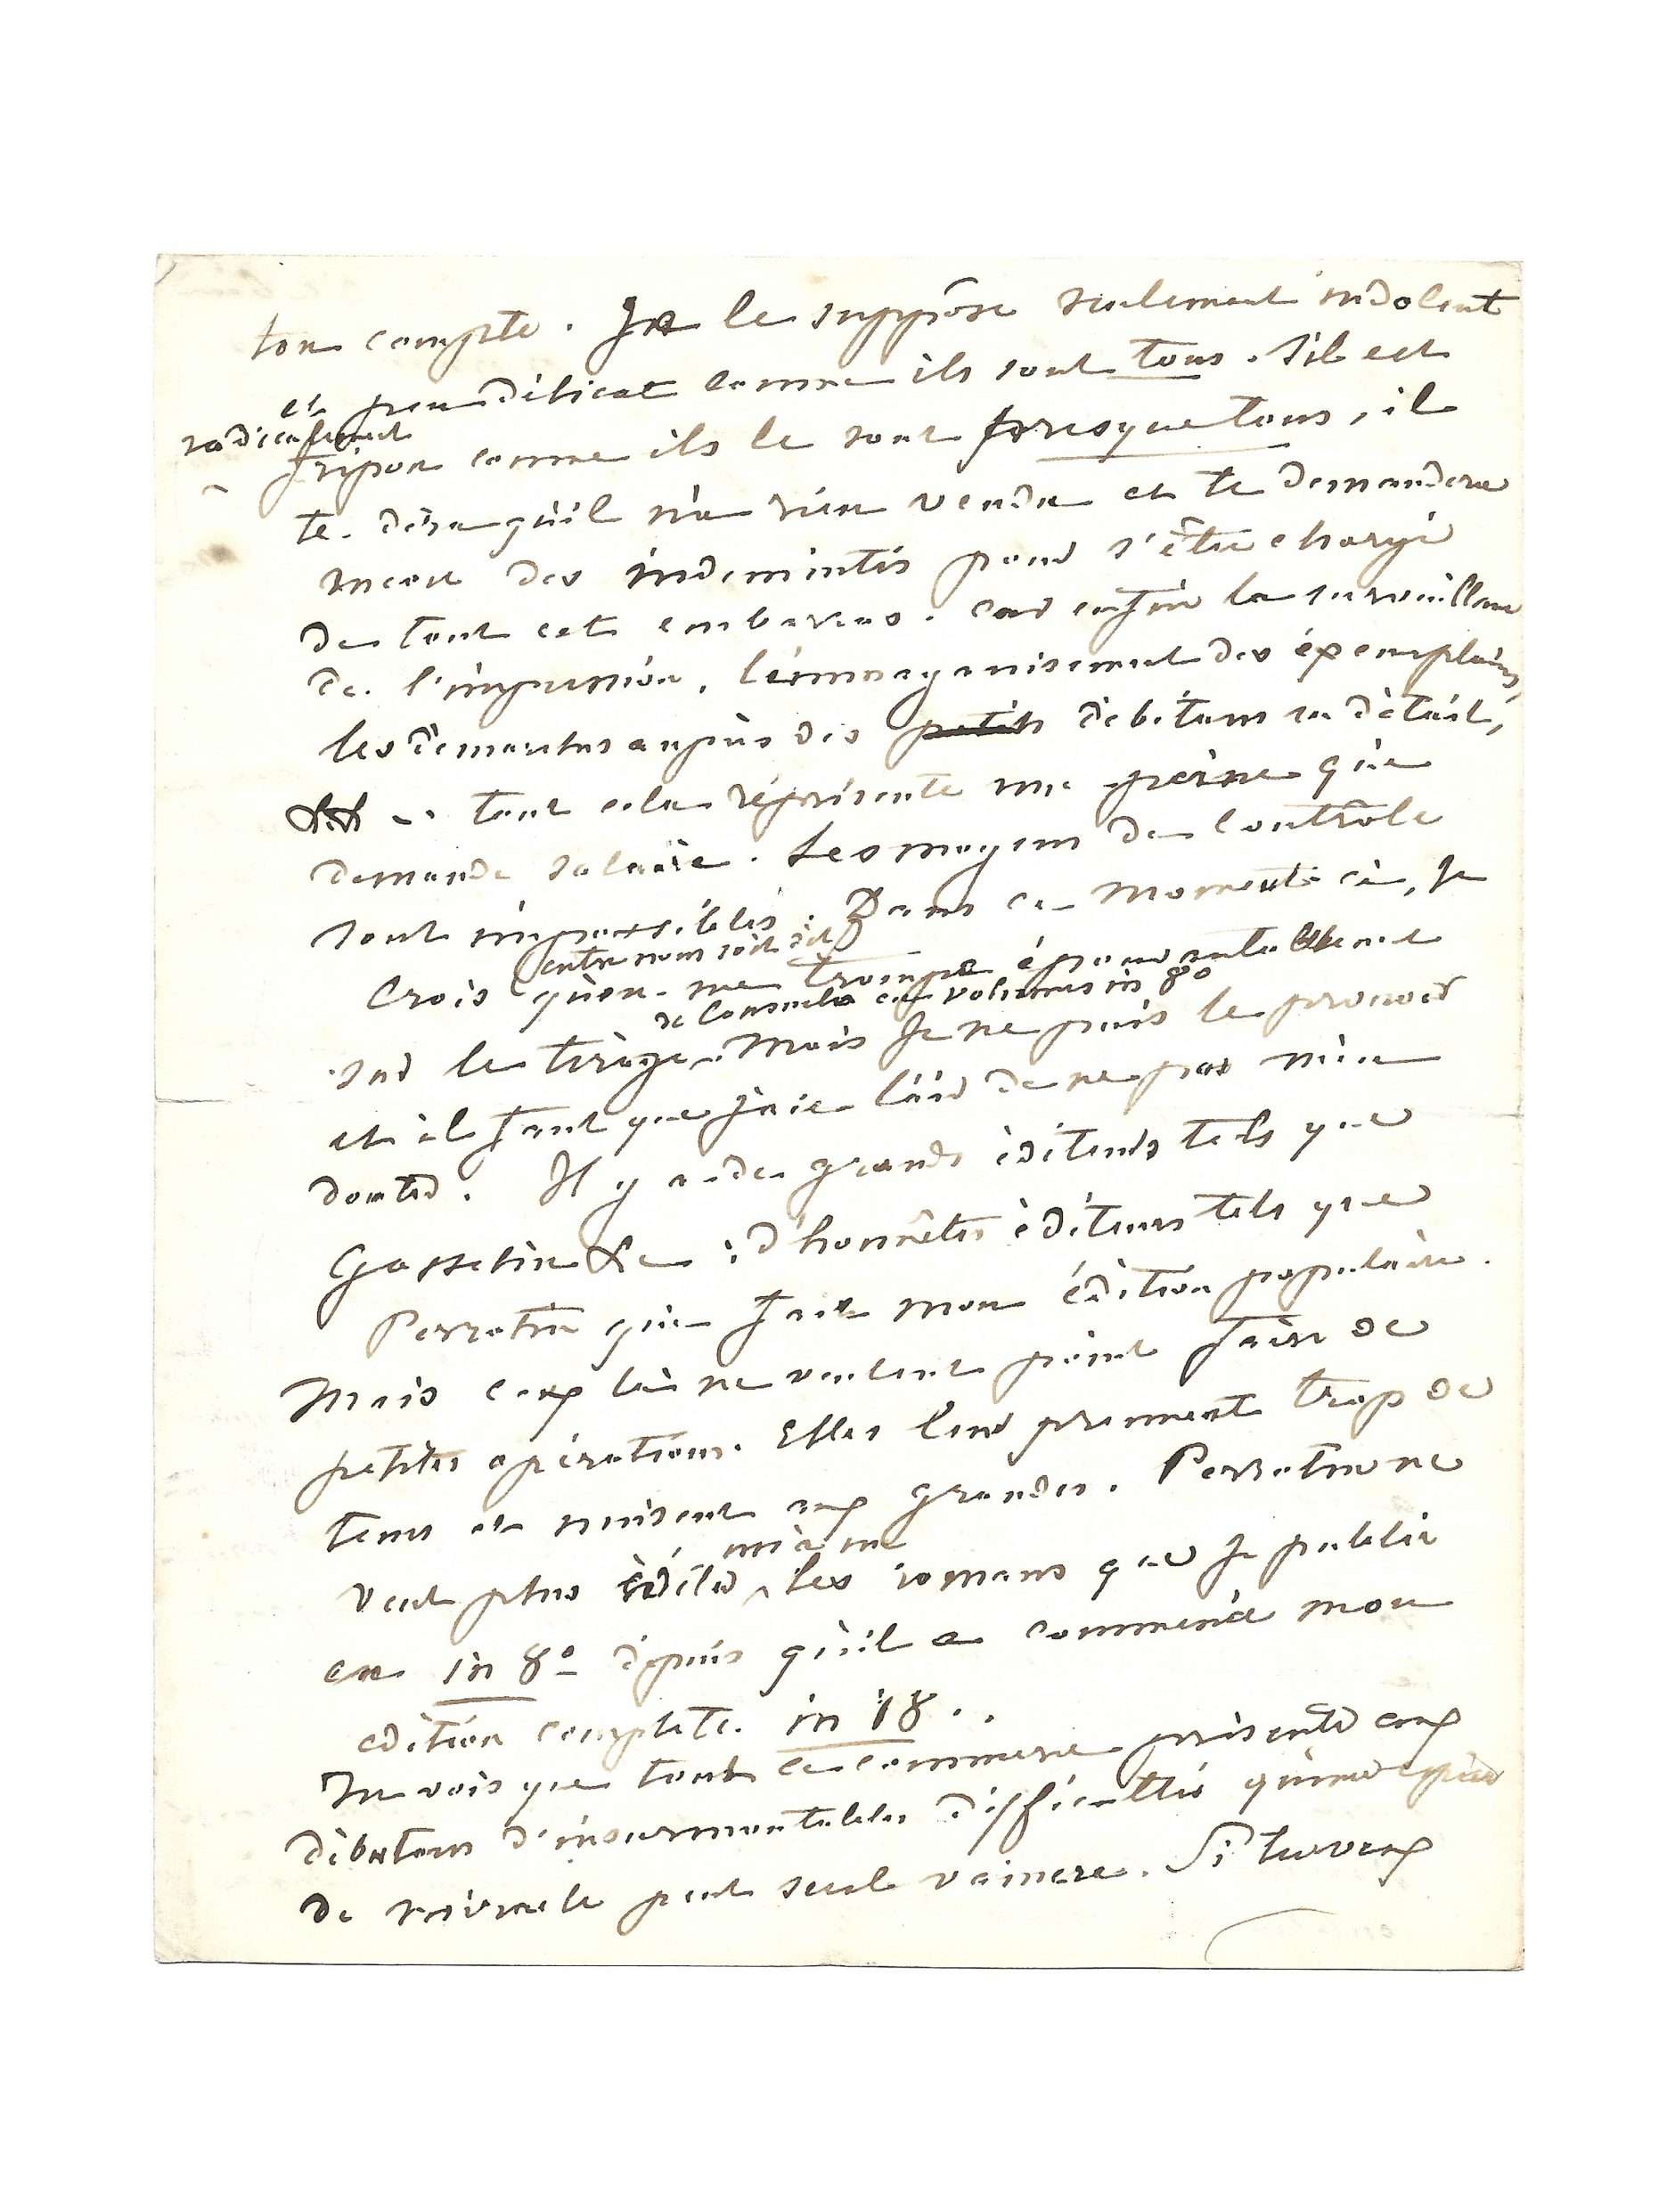 ton compte. Je le suppose seulement indolent
et peu délicat comme ils sont tous. S'il est
radicalement
fripon comme ils le sont presque tous, il
te dira qu'il n'a rien vendu et te demandera
encor des indemnités pour s'être chargé
de tout cet embarras. Car enfin la surveillance
de l'impression, l'emmaganisement des éxemplaires,
les démarches auprès des petits débitans en détail,
&& .. tout cela réprésente une peine qui
demande salaire. Les moyens de contrôle
sont impossibles. Dans ce moment ci, je
entre nous soit dit
crois qu'on me trompe épouvantablement
de Consuelo en volumes in 8°
sur le tirage. Mais je ne puis le prouver
et il faut que j'aie l'air de ne pas m'en
douter. Il y a de grands éditeurs tels que
Gosselin &c ; d'honnêtes éditeurs tels que
Perrotin qui fait mon édition populaire.
Mais ceux là ne veulent point faire de
petites opérations. Elles leur prennent trop de
tems et nuisent aux grandes. Perrotin ne
même
veut plus éditer les romans que je publie
en in 8° depuis qu'il a commencé mon
édition complete in 18..
Tu vois que tout ce commerce présente aux
débutans d'insurmontables difficultés qu'une espèce
de miracle peut seul vaincre. Si tu veux